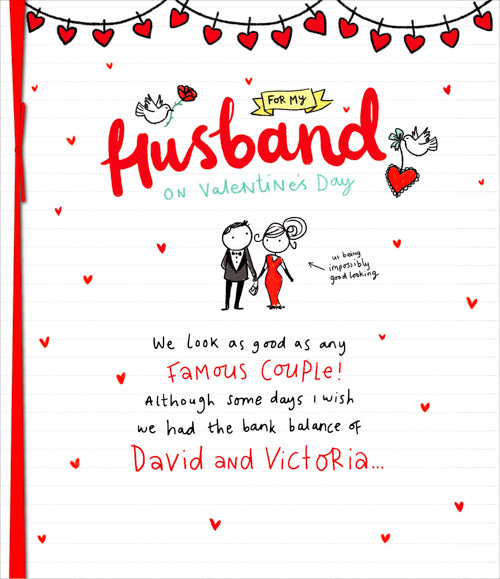 FOR MY
Husband
ON Valentine's Day
us being
impossibly
good looking
We look as good as any
Famous Couple!
Although some days I wish
we had the bank balance of
David and Victoria...